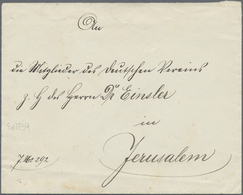 An
die Mitglieder des Deutschen Vereins
z. H des Herrn Dr Einsler
in
Jerusalem